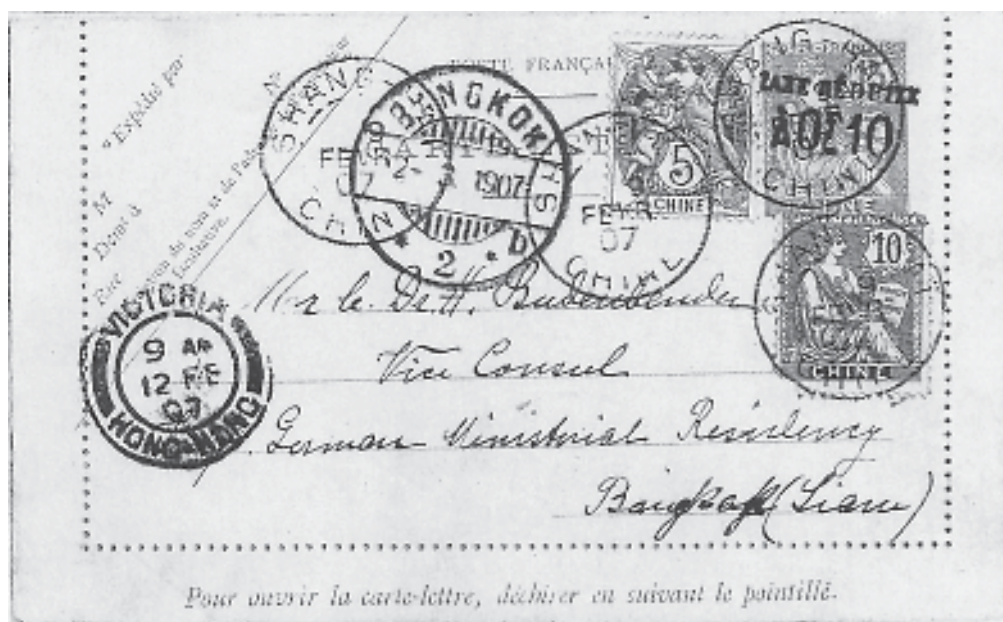 "Expédié par
M
Demt à
POSTE FRANÇAI
SHANG
CHIN
FE
07
BANGKOK
2- 3 1907
* 2 * b
5
CHINE
FE
07
CHINE
TAXE RÉDUITE
A 0F 10
CHIN
10
CHINE
VICTORIA
9 AM
12 FE
07
HONG-KONG
Mr le Dr H. Budenbender
Vice Consul
German Ministrial Residency
Bangkok (Siam)
Pour ouvrir la carte-lettre, déchirer en suivant le pointillé.